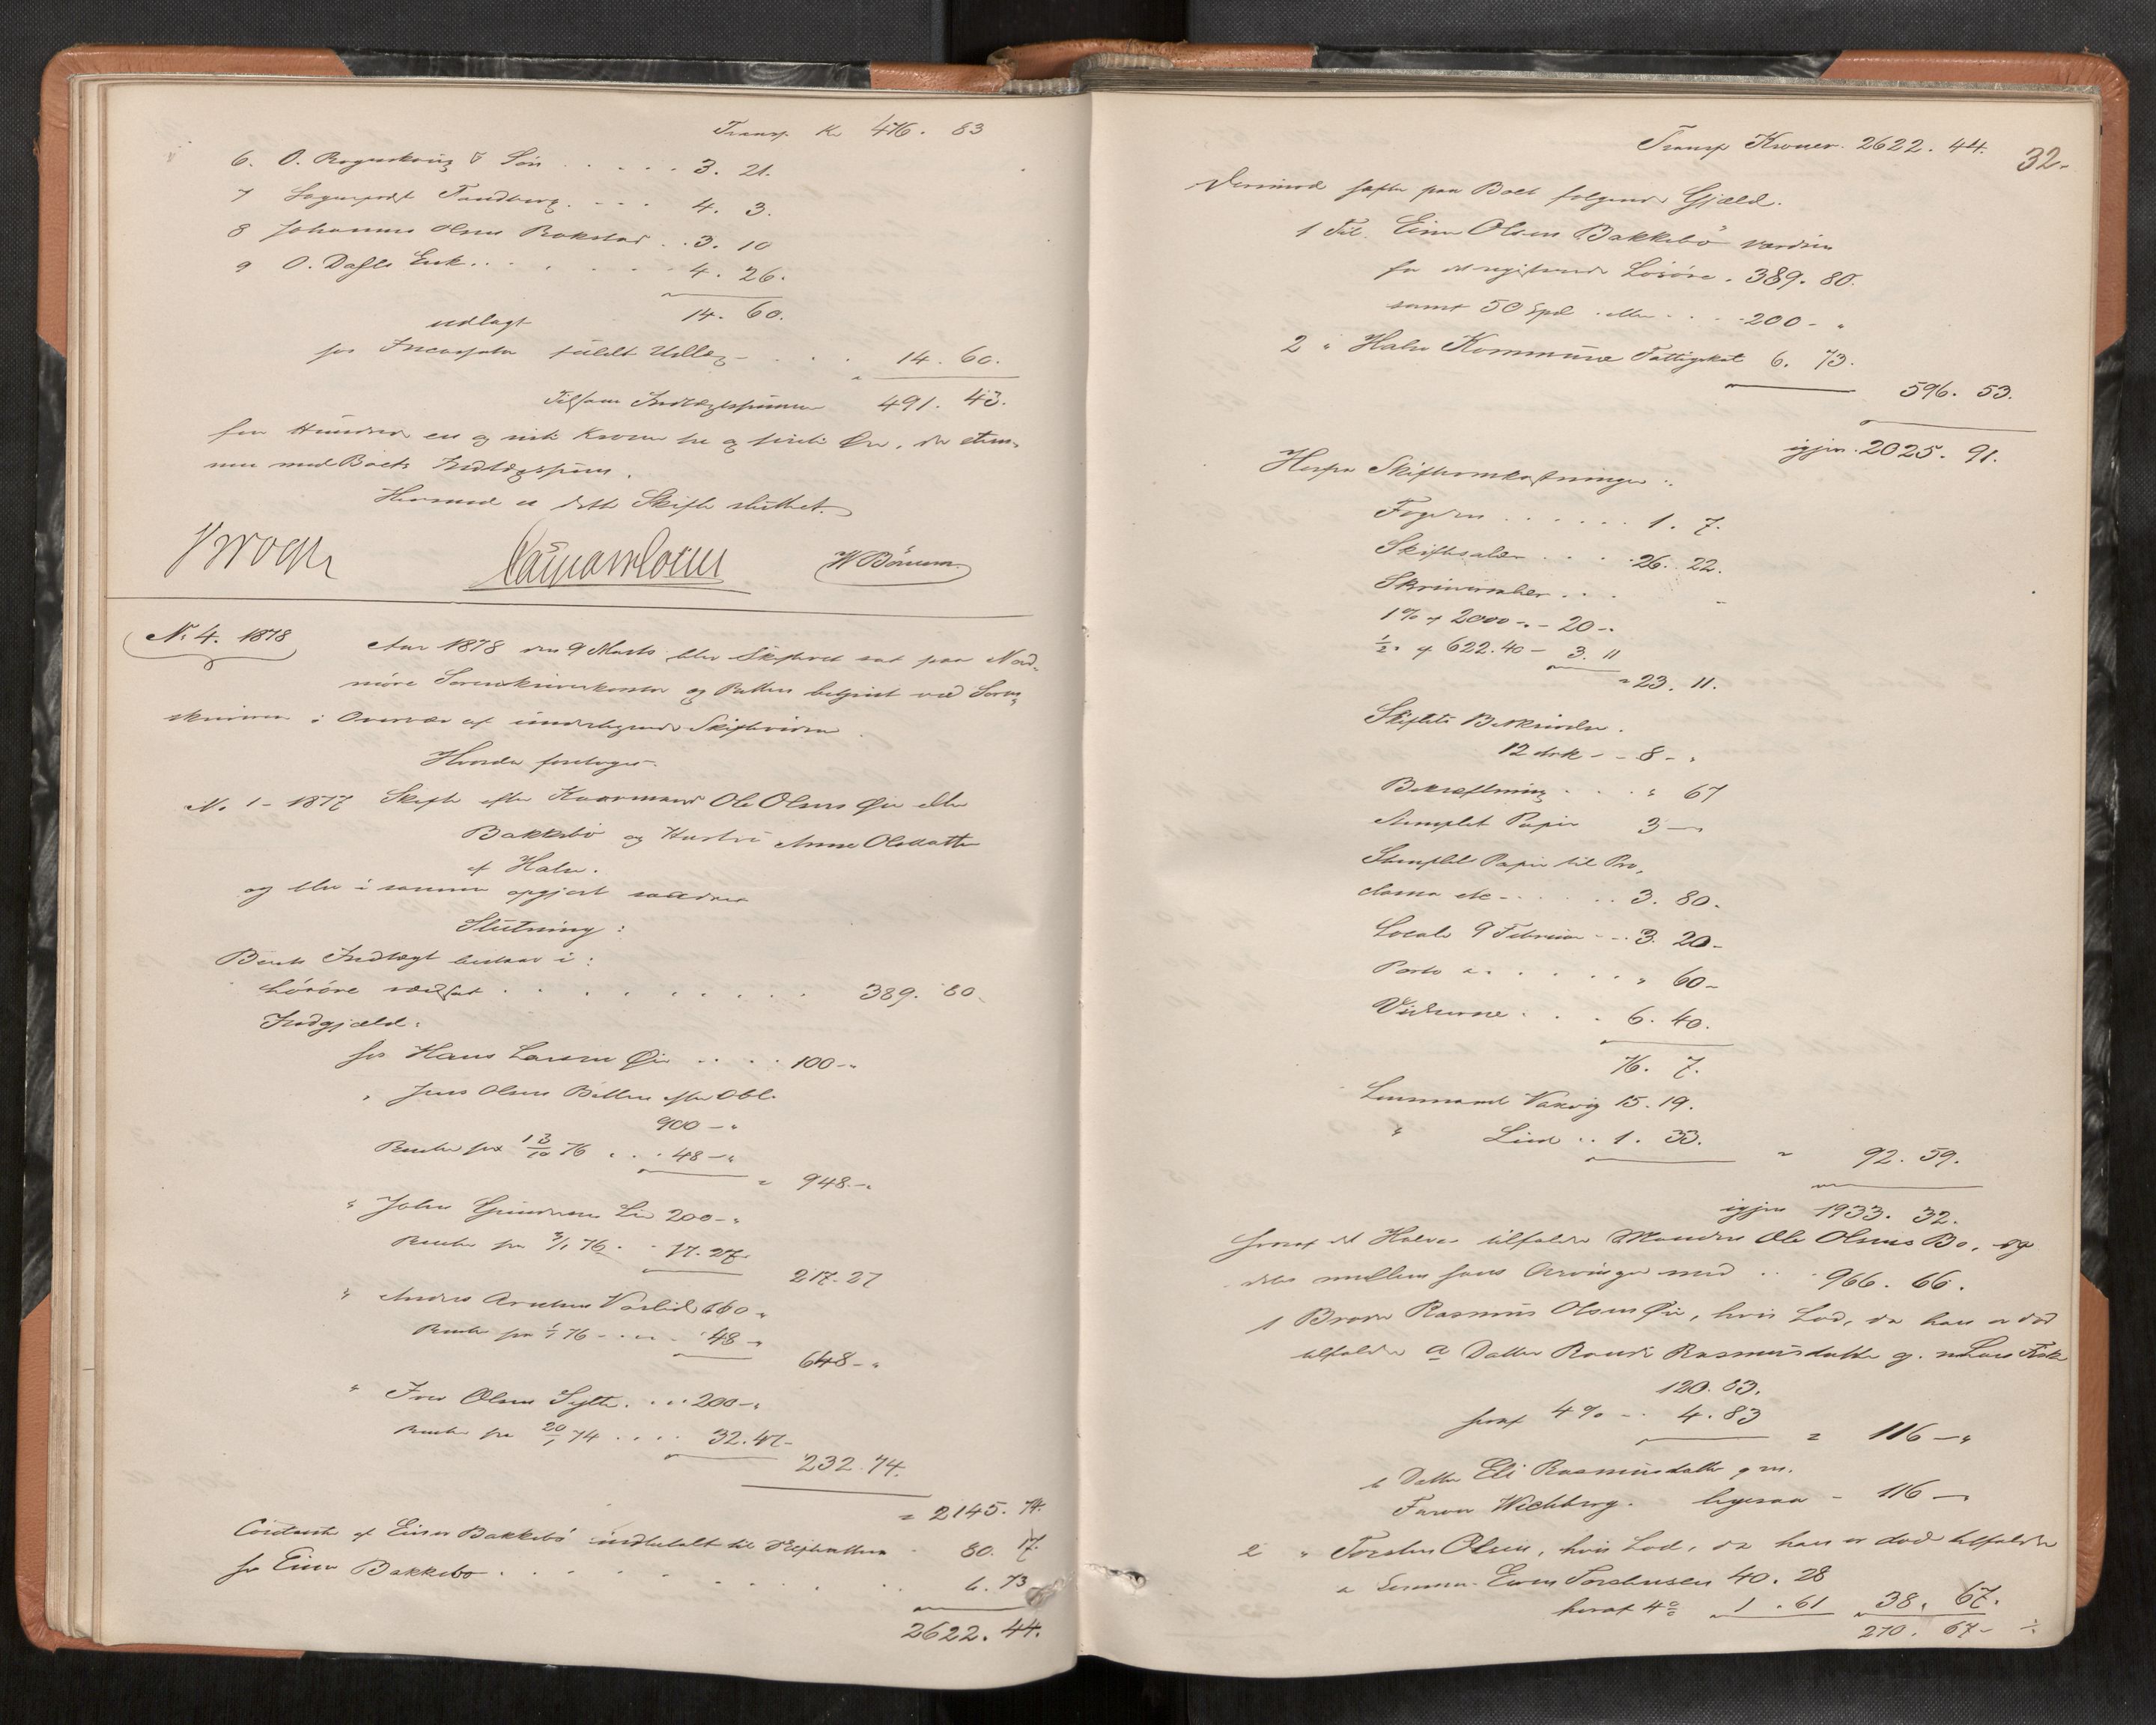 Transp. Kr 476. 83
6. O. Rognskoug & Søn . . . . 3. 21.
7 Sogneprest Tandberg . - - - 4. 3.
8 Johannes Olsen Rokstad . . 3. 10
9 O. Dahls Enk . . . . . . 4. 26.
14. 60.
udlagt
hos Incassator fuldt Udlæg - . . . 14. 60.
Tilsam Indtægtssummen 491. 43.
fire Hundrede en og nitti Kroner tre og firti Øre, der stem-
mer med Boets Indtægtssum.
Hermed er dette Skifte sluttet.
Krogh
W Bónum
No 4. 1878
Aar 1878 den 9 Marts blev Skifteret sat paa Nord-
møre Sorenskriverkontor og Retten betjent ved Soren-
skriveren i Overvær af undertegnede Skiftevidner.
Hvorda foretoges.
No 1 - 1877 Skifte efter Kaarmand Ole Olsen Øie eller
Bakkebø og Hustru Anne Olsdatter
af Halse.
og blev i samme opgjort saadan
Slutning:
Boets Indtægt bestaar i:
Løsøre værdsat . . . . . . . . . . 389. 80.
Indgjæld:
hos Hans Larsen Øie . . . . . 100 - "
" Jens Olsen Botten efter Obl.
900 - "
Renter fra 13/10 76 . . . 48 - "
= 948. - "
" John Gundersen Lie 200 - "
Renter fra 3/1 76 . . 17. 27.
217. 27
" Anders Arntsen Vaslid 600 "
Renter fra 1/1 76 - . . - 48 - "
648 - "
" Iver Olsen Sylte . . . . 200 - "
Renter fra 20/1 74 . . . . 32. 47 -
232. 74.
= 2145. 74.
af Einer Bakkebø indbetalt til - 80. 17.
fra Einer Bakkebø . . . . . . . . . . 6. 73
2622. 44.
32.
Transp Kroner. 2622. 44.
Derimod hefter paa Boet følgende Gjæld.
1 Til Einer Olsen Bakkebø værdien
for det registrerede Løsøre . 389. 80.
samt 50 Spd. eller . . . . 200 - "
2 " Halse Kommune Fattigskat 6. 73.
596. 53.
igjen . 2025. 91.
Herfra Skifteomkostninger:
Fogden . . . . . . 1. 7.
Skiftesalær . . . . 26. 22.
Skriversalær . . . -
1 % af 2000 - . - 20 - .
1/2 " af 622. 40 - 3. 11
= 23. 11.
Skiftets Beskrivelse.
12 ark - - 8 - "
Bekræftning . . . " 67
Stemplet Papir 3 -
Stemplet Papir til Pro-
clama etc - . . . . . 3. 80.
Locale 9 Februar - - . 3. 20 -
Porto . . . . . . " 60 -
Vidnerne . . . . 6. 40.
76. 7.
Lensmand Vaagvig 15. 19.
" Lied . . 1. 33.
= 92. 59.
igjen 1933. 32.
hvoraf det Halve tilfalder Manden Ole Olsens Bo, og
deles mellem hans Arvinger med . . . 966. 66.
1 Broder Rasmus Olsen Øie, hvis Lod, da han er død
tilfalder a Datter Randi Rasmusdatter g. m. Lars
120. 83.
hvoraf 4 % - . 4. 83
= 116 - "
b Datter Eli Rasmusdatter g m.
Wichberg . ligesaa - 116 -
2 " Torsten Olsen, hvis Lod, da han er død tilfalder
a Sønnen Even Torstensen 40. 28
hvoraf 4 % 1. 61 38. 67.
270. 67 -